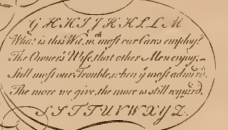 G H H I J H K L L M
What is this Wit, wch most our Cares employ?
The Owner's Wife, that other Men enjoy,
Still most our Trouble, when ye most admir'd,
The more we give, the more is still requir'd.
S S T T U V W X Y Z.